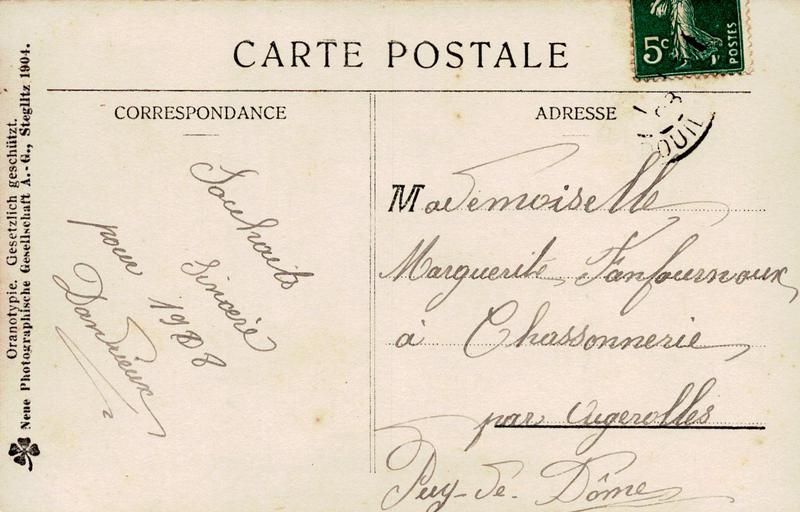 CARTE POSTALE
5c
POSTES
CORRESPONDANCE
ADRESSE
Souhaits
Sincère
pour 1908
Dandrieux
Mademoiselle
Marguerite Fanfournoux
à Chassonnerie
par Augerolles
Puy-de-Dôme
Oranotypie. Gesetzlich geschützt.
Neue Photographische Gesellschaft A.-G., Steglitz 1904.